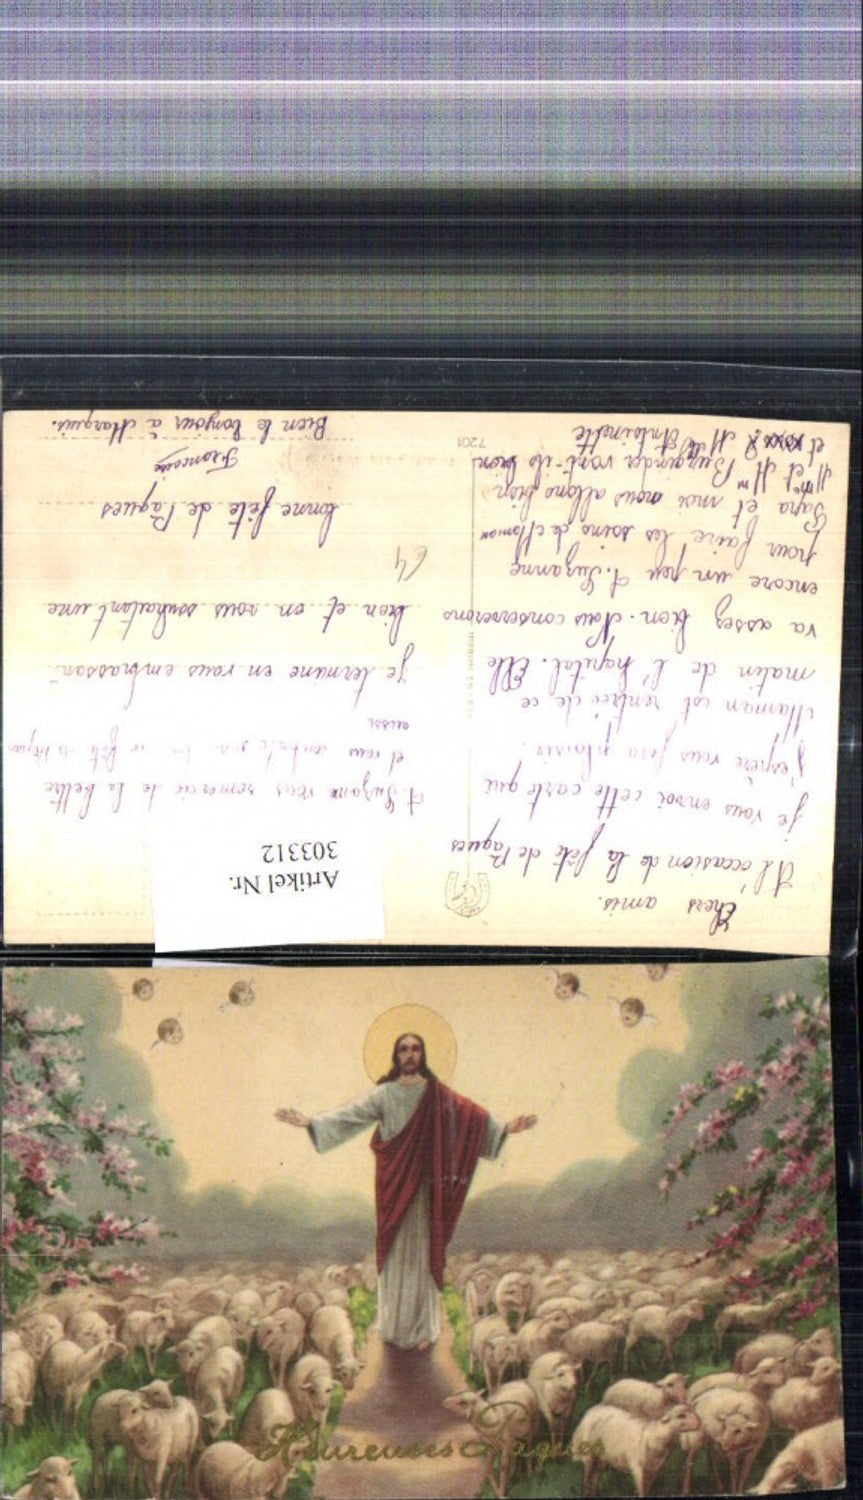 Chers amis.
A l'occasion de la fête de Pâques
je vous envoi cette carte que
j'espère vous fera plaisir.
Maman est rentrée de ce
matin de l'hopital. Elle
va assez bien. Nous conserverons
encore un peu t. Suzanne
pour faire les soins de Maman
Papa et moi nous allons bien
Mme et M Burgunder vont-ils bien
et Antoinette
7201
Artikel Nr.
303312
t. Suzanne vous remercie de la lettre
et vous
aussi
je termine en vous embrassant
bien et en vous souhaitant une
64
bonne fête de Pâques
Francoise
Bien le bonjour à Marquis.
Heureuses Pâques